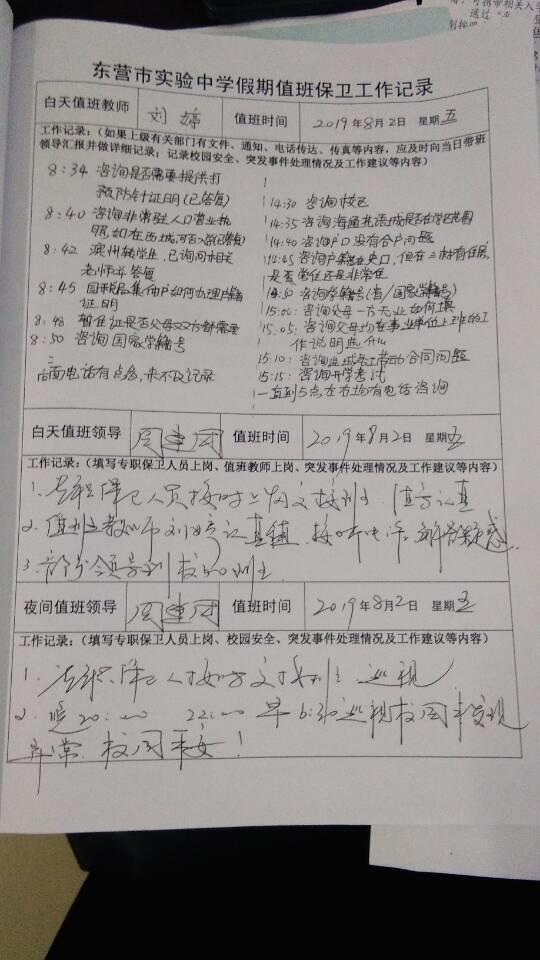 东营市实验中学假期值班保卫工作记录
白天值班教师 刘婷 值班时间 2019年8月2日 星期五
工作记录:(如果上级有关部门有文件、通知、电话传达、传真等内容,应及时向当日带班
领导汇报并做详细记录;记录校园安全、突发事件处理情况及工作建议等内容)
8:34 咨询是否需要提供打
预防针证明(已答复)
8:40 咨询非常驻人口营业执
照,如在西城,可否入学(已答复)
8:42 滨州转学业,已询问相关
老师并答复
8:45 国税局集体户如何办理户籍
证明
8:48 暂住证是否父母双方都需要
8:50 咨询国家学籍号
后面电话有点多,来不及记录
14:30 咨询校区
14:35 咨询海通花语城是否在学区范围
14:40 咨询户口没有合户问题
14:45 咨询户籍在央口,但在三村有住房,
是否常住还是非常住
14:50 咨询学籍号(省/国家学籍号)
15:00:咨询父母一方无业如何填
15:05:咨询父母均在事业单位上班的工
作说明怎么
15:10:咨询 劳动合同问题
15:15:咨询开学考试
一直到5点左右均有电话咨询
白天值班领导 周建团 值班时间 2019年8月2日 星期五
工作记录:(填写专职保卫人员上岗、值班教师上岗、突发事件处理情况及工作建议等内容)
1. 专职保卫人员按时上岗交接班, 值守认真
2. 值班教师刘婷认真值 接听电话 解答疑惑.
3. 部分领导到校
夜间值班领导 周建团 值班时间 2019年8月2日 星期五
工作记录:(填写专职保卫人员上岗、校园安全、突发事件处理情况及工作建议等内容)
1. 专职保卫人按时交接班 巡视
2. 晚20:00 22:00 早6:30巡视校园未发现
异常. 校园平安!